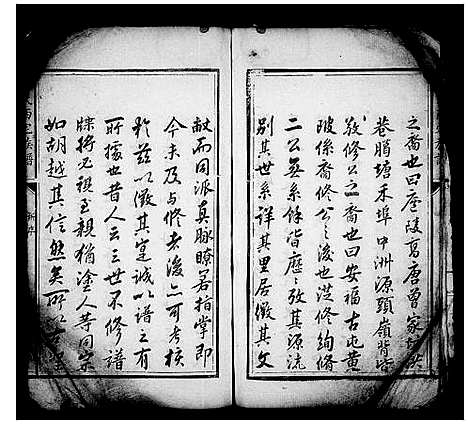 之裔也曰廬陵葛唐曾家
巷腊塘禾埠中洲源頭嶺背
敎修公之裔也曰安福古屯黃
陂係喬修公之後也從修絢修
二公無系餘皆歷歷攷其源流
別其世系詳其里居徵其文
獻而同派真脉瞭若指掌即
今未及與修者後亦可考核
於茲以徵其寔誠以譜之有
所據也昔人云三世不修譜
牒將必視至親猶塗人等同宗
如胡越其信然矣所以